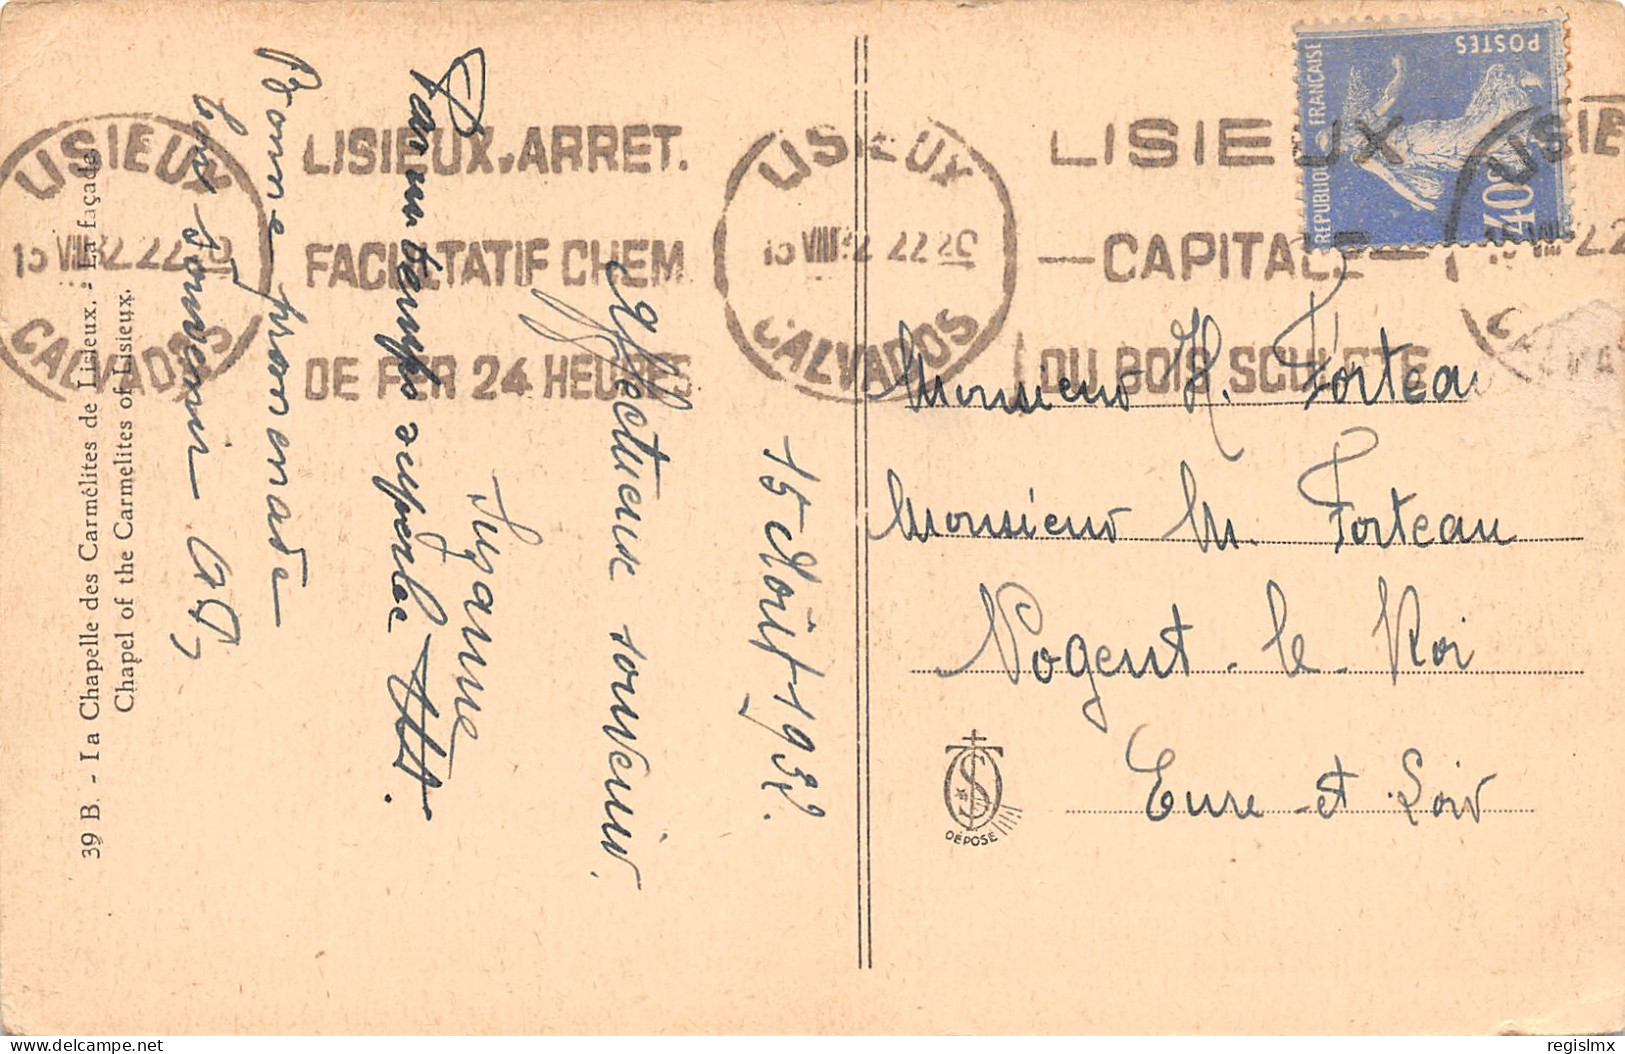 39 B. - La Chapelle des Carmélites de Lisieux. - La façade.
Chapel of the Carmelites of Lisieux.
Bon Souvenir
Bonne promenade
Par un temps superbe
Suzanne
Affectueux souvenir.
15 Août 1932.
LISIEUX
15 VIII 32 22
CALVADOS
LISIEUX. ARRET.
FACULTATIF CHEM
DE FER 24 HEURES
LISIEUX
15 VIII 32 22
CALVADOS
LISIEUX
CAPITALE
DU BOIS SCULPTE
LISIEUX
CALVADOS
POSTES
REPUBLIQUE FRANÇAISE
40c
Monsieur H. Forteau
Monsieur M. Forteau
Nogent-le-Roi
Eure-et-Loir
DÉPOSÉ
delcampe.net
regislmx